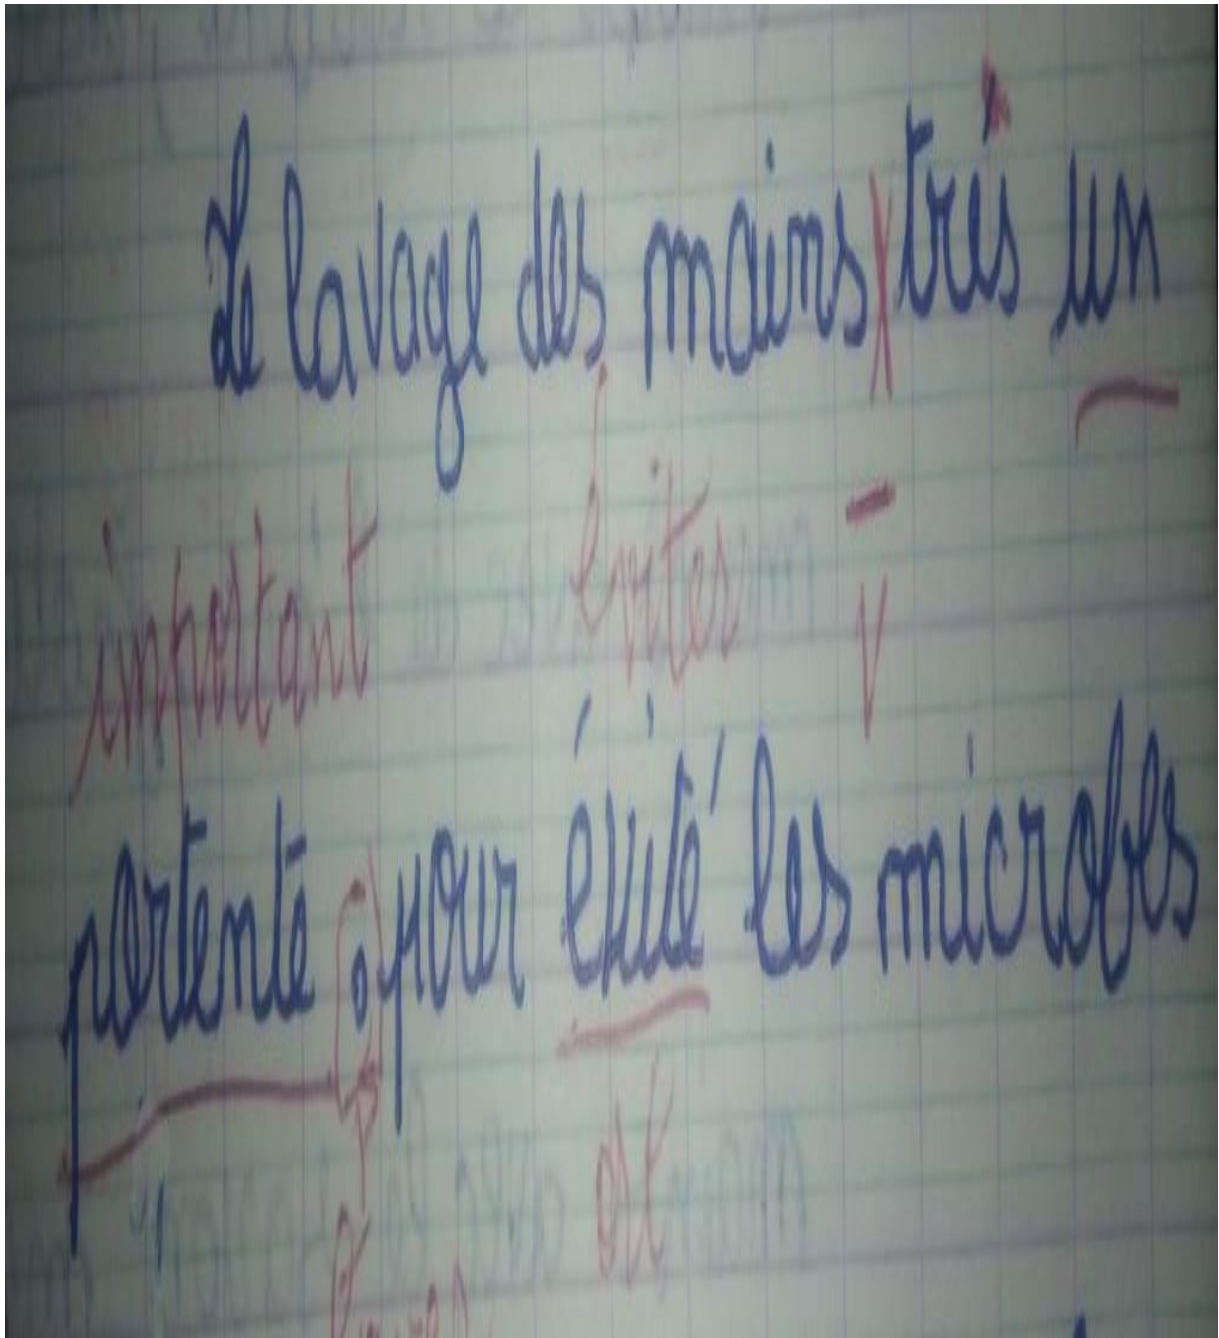 Le lavage des mains très un
important éviter
portente, pour évité les microbes
est